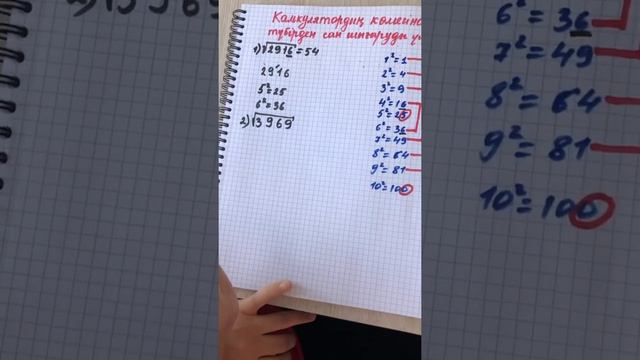 Калькулятордың көмегінсіз
түбірден сан шығаруды
1) √2916 = 54
29'16
5²=25
6²=36
2) √3969
1²=1
2²=4
3²=9
4²=16
5²=25
6²=36
7²=49
8²=64
9²=81
10²=100
6²=36
7²=49
8²=64
9²=81
10²=100